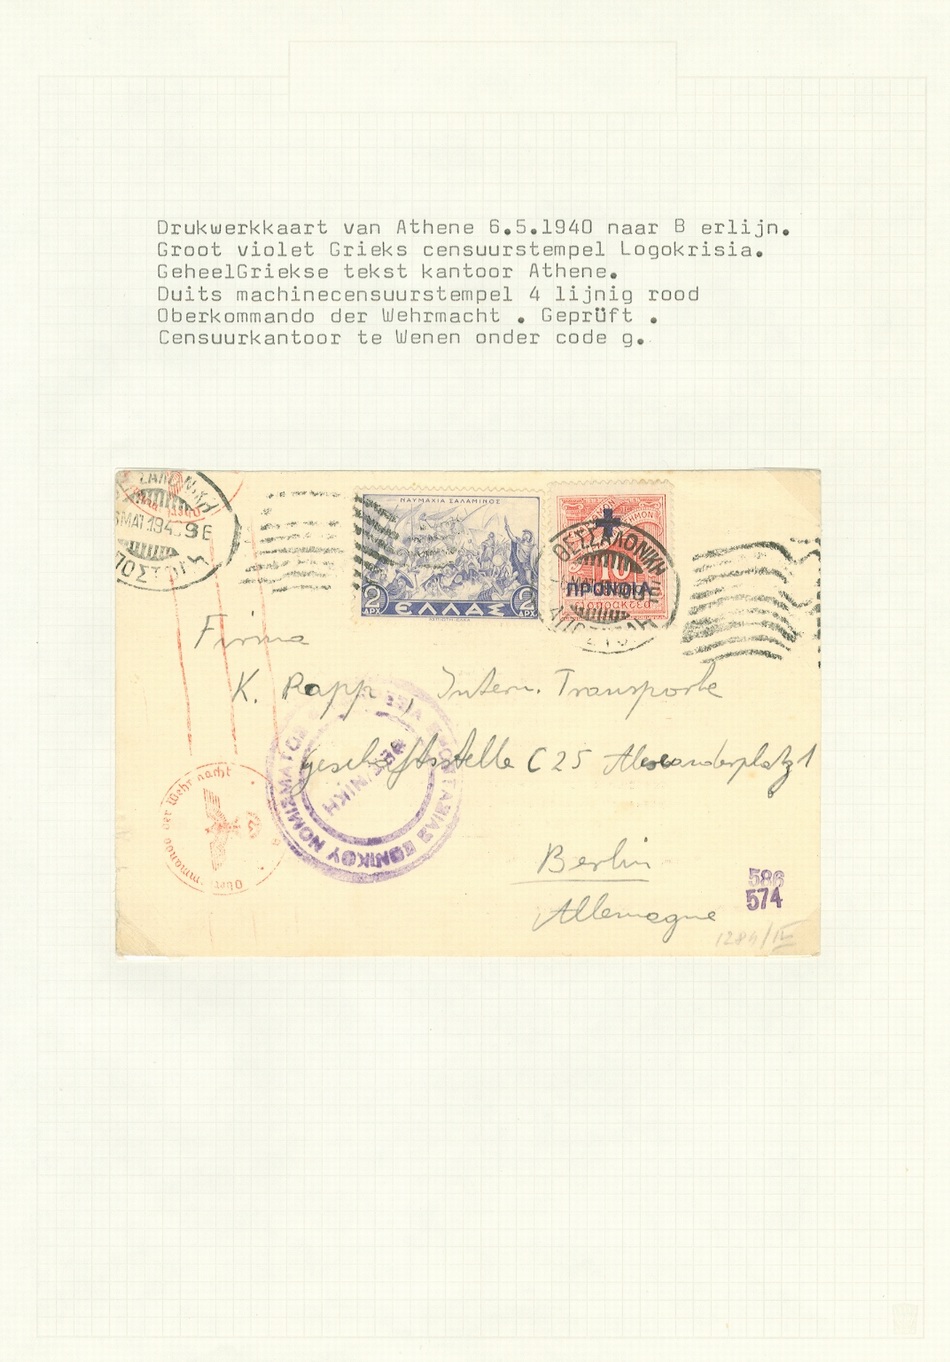 Drukwerkkaart van Athene 6.5.1940 naar B erlijn.
Groot violet Grieks censuurstempel Logokrisia.
GeheelGriekse tekst kantoor Athene.
Duits machinecensuurstempel 4 lijnig rood
Oberkommando der Wehrmacht . Geprüft .
Censuurkantoor te Wenen onder code g.
ΝΑΥΜΑΧΙΑ ΣΑΛΑΜΙΝΟΣ
2 ΔΡ ΕΛΛΑΣ 2 ΔΡ
ΘΕΣΣΑΛΟΝΙΚΗ
10
ΠΡΟΝΟΙΑ
Firma
K. Rapp, Intern. Transporte
Geschäftsstelle C25 Alexanderplatz 1
ΕΘΝΙΚΟΥ ΝΟΜΙΣΜΑΤΟΣ
der Wehrmacht
Berlin
Allemagne
586
574
1284/IV